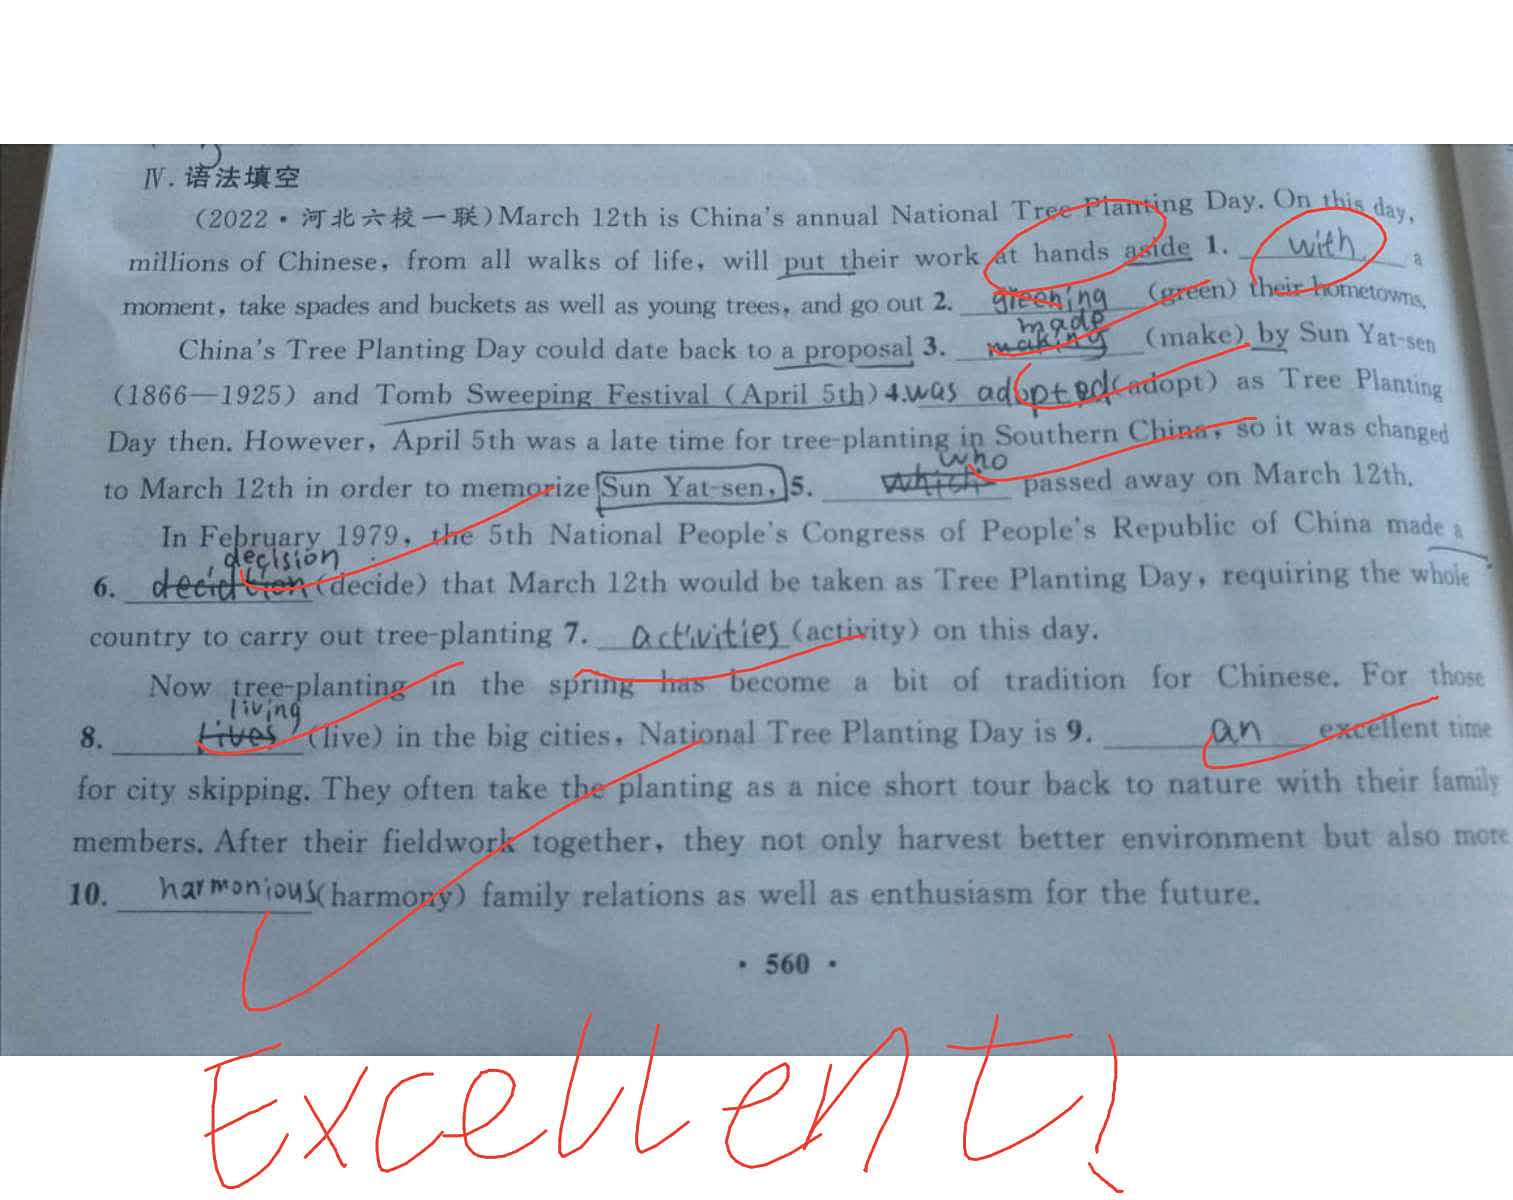 Ⅳ. 语法填空
(2022·河北六校一联)March 12th is China's annual National Tree Planting Day. On this day,
millions of Chinese, from all walks of life, will put their work at hands aside 1. with a
moment, take spades and buckets as well as young trees, and go out 2. greening (green) their hometowns.
made
China's Tree Planting Day could date back to a proposal 3. making (make) by Sun Yat-sen
(1866—1925) and Tomb Sweeping Festival (April 5th) 4. was adopted (adopt) as Tree Planting
Day then. However, April 5th was a late time for tree-planting in Southern China, so it was changed
who
to March 12th in order to memorize Sun Yat-sen, 5. which passed away on March 12th.
In February 1979, the 5th National People's Congress of People's Republic of China made a
decision
6. decidtion (decide) that March 12th would be taken as Tree Planting Day, requiring the whole
country to carry out tree-planting 7. activities (activity) on this day.
Now tree-planting in the spring has become a bit of tradition for Chinese. For those
living
8. lives (live) in the big cities, National Tree Planting Day is 9. an excellent time
for city skipping. They often take the planting as a nice short tour back to nature with their family
members. After their fieldwork together, they not only harvest better environment but also more
10. harmonious (harmony) family relations as well as enthusiasm for the future.
· 560 ·
Excellent!